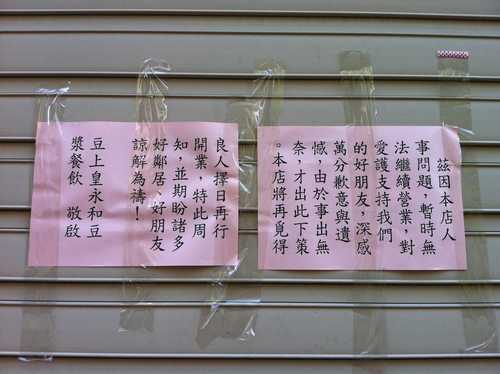 茲因本店人
事問題，暫時無
法繼續營業，對
愛護支持我們
的好朋友，深感
萬分歉意與遺
憾，由於事出無
奈，才出此下策
。本店將再覓得
良人擇日再行
開業，特此周
知，並期盼諸多
好鄰居、好朋友
諒解為禱！
豆上皇永和豆
漿餐飲　敬啟